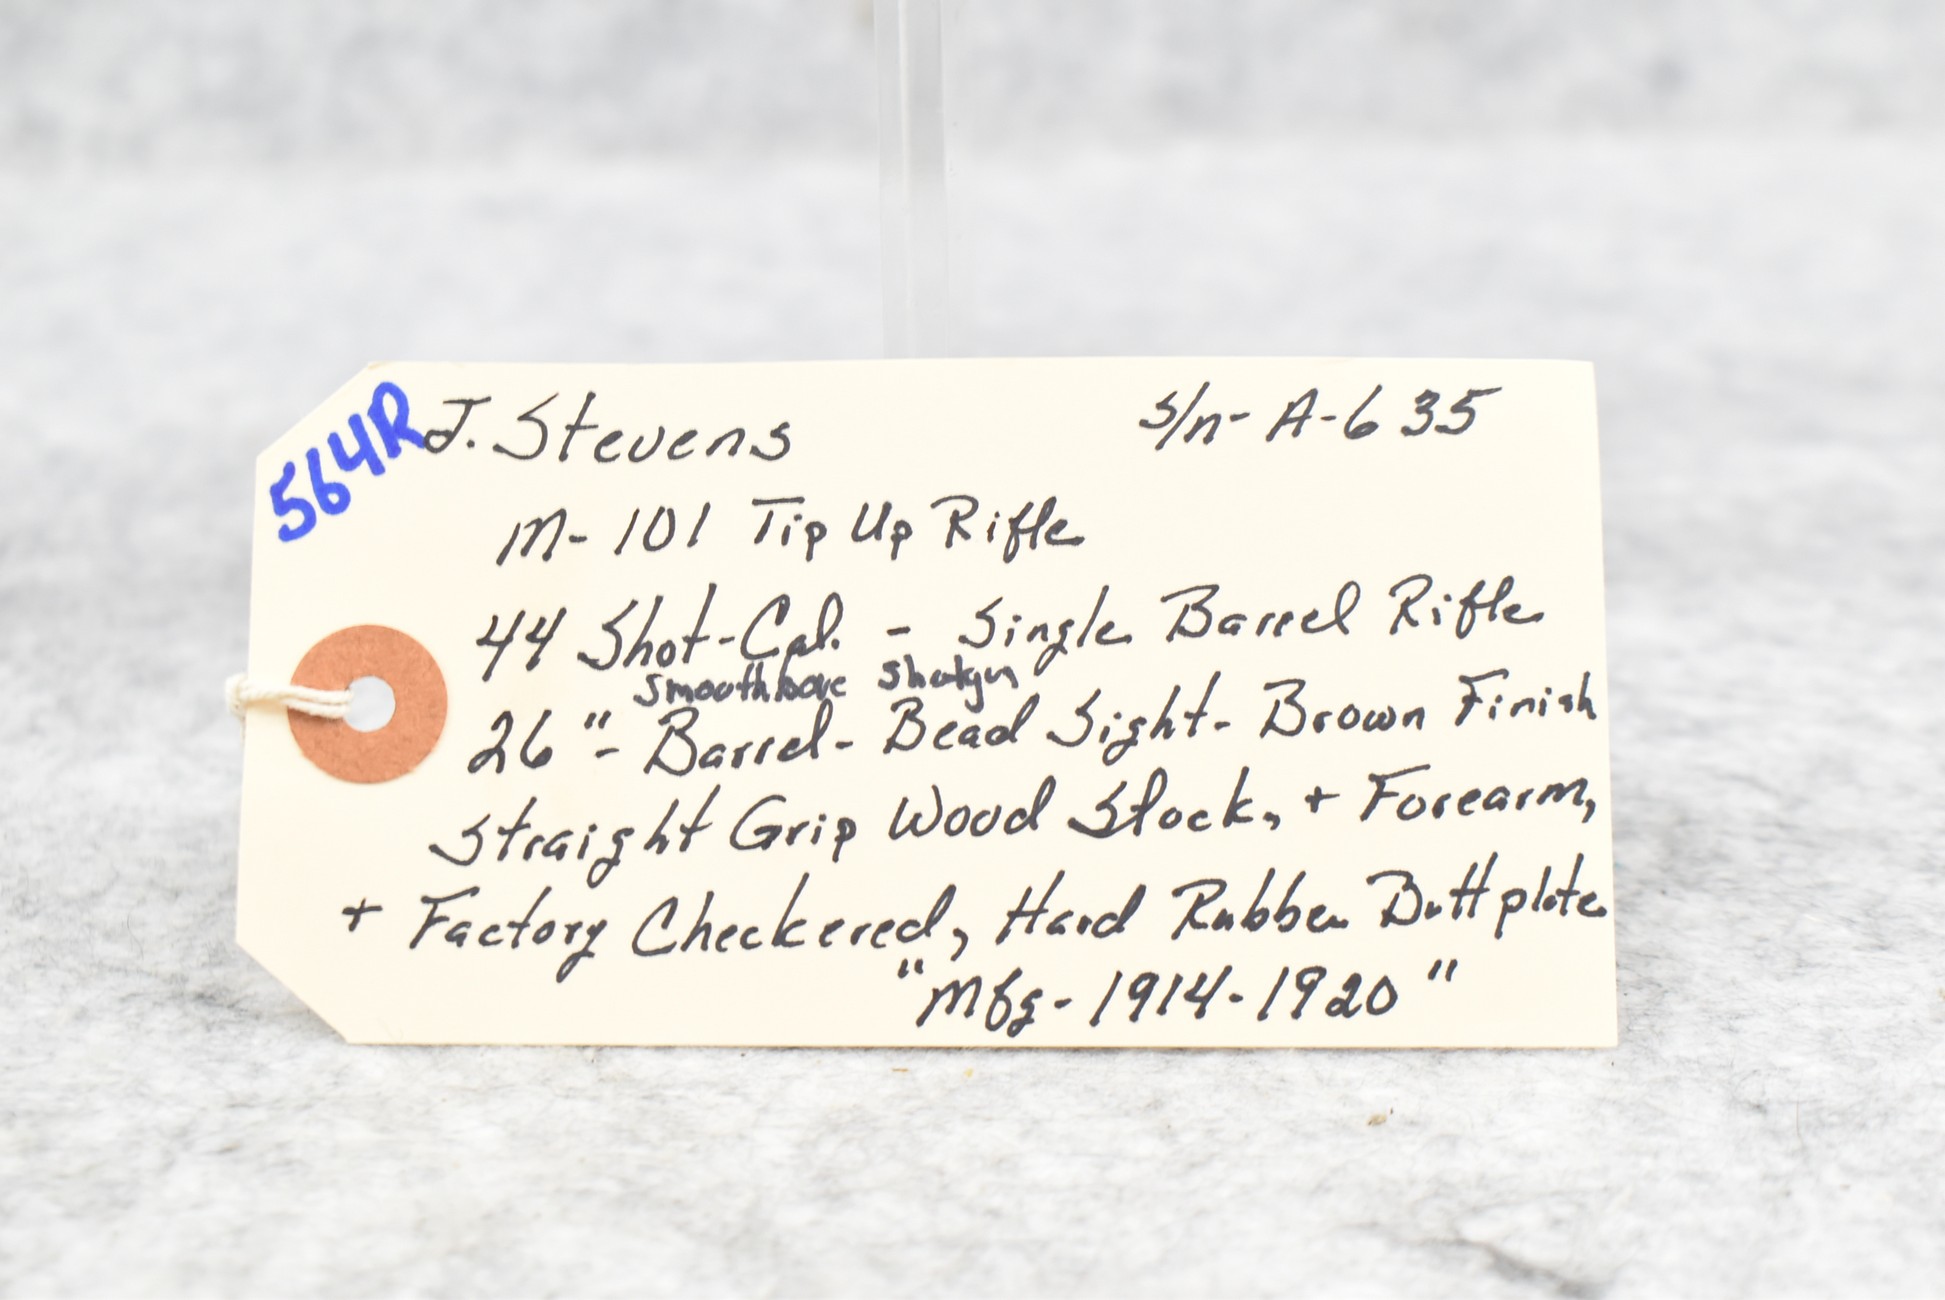 564R
J. Stevens s/n- A-635
M-101 Tip Up Rifle
44 Shot-Cal. - Single Barrel Rifle
smoothbore shotgun
26"- Barrel- Bead Sight- Brown Finish
Straight Grip Wood Stock, + Forearm,
+ Factory Checkered, Hard Rubber Buttplate
"Mfg- 1914-1920"